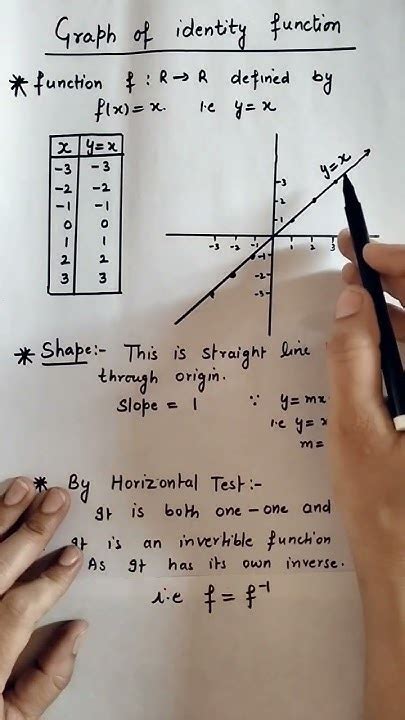 Graph of identity function
* function f : R → R defined by
f(x) = x. i.e y = x
x y=x
-3 -3
-2 -2
-1 -1
0 0
1 1
2 2
3 3
y=x
3
2
1
-3 -2 -1 1 2 3
-1
-2
-3
* Shape:- This is straight line
through origin.
Slope = 1 ∵ y = mx
i.e y = x
m =
* By Horizontal Test:-
It is both one-one and
It is an invertible function
As It has its own inverse.
i.e f = f⁻¹